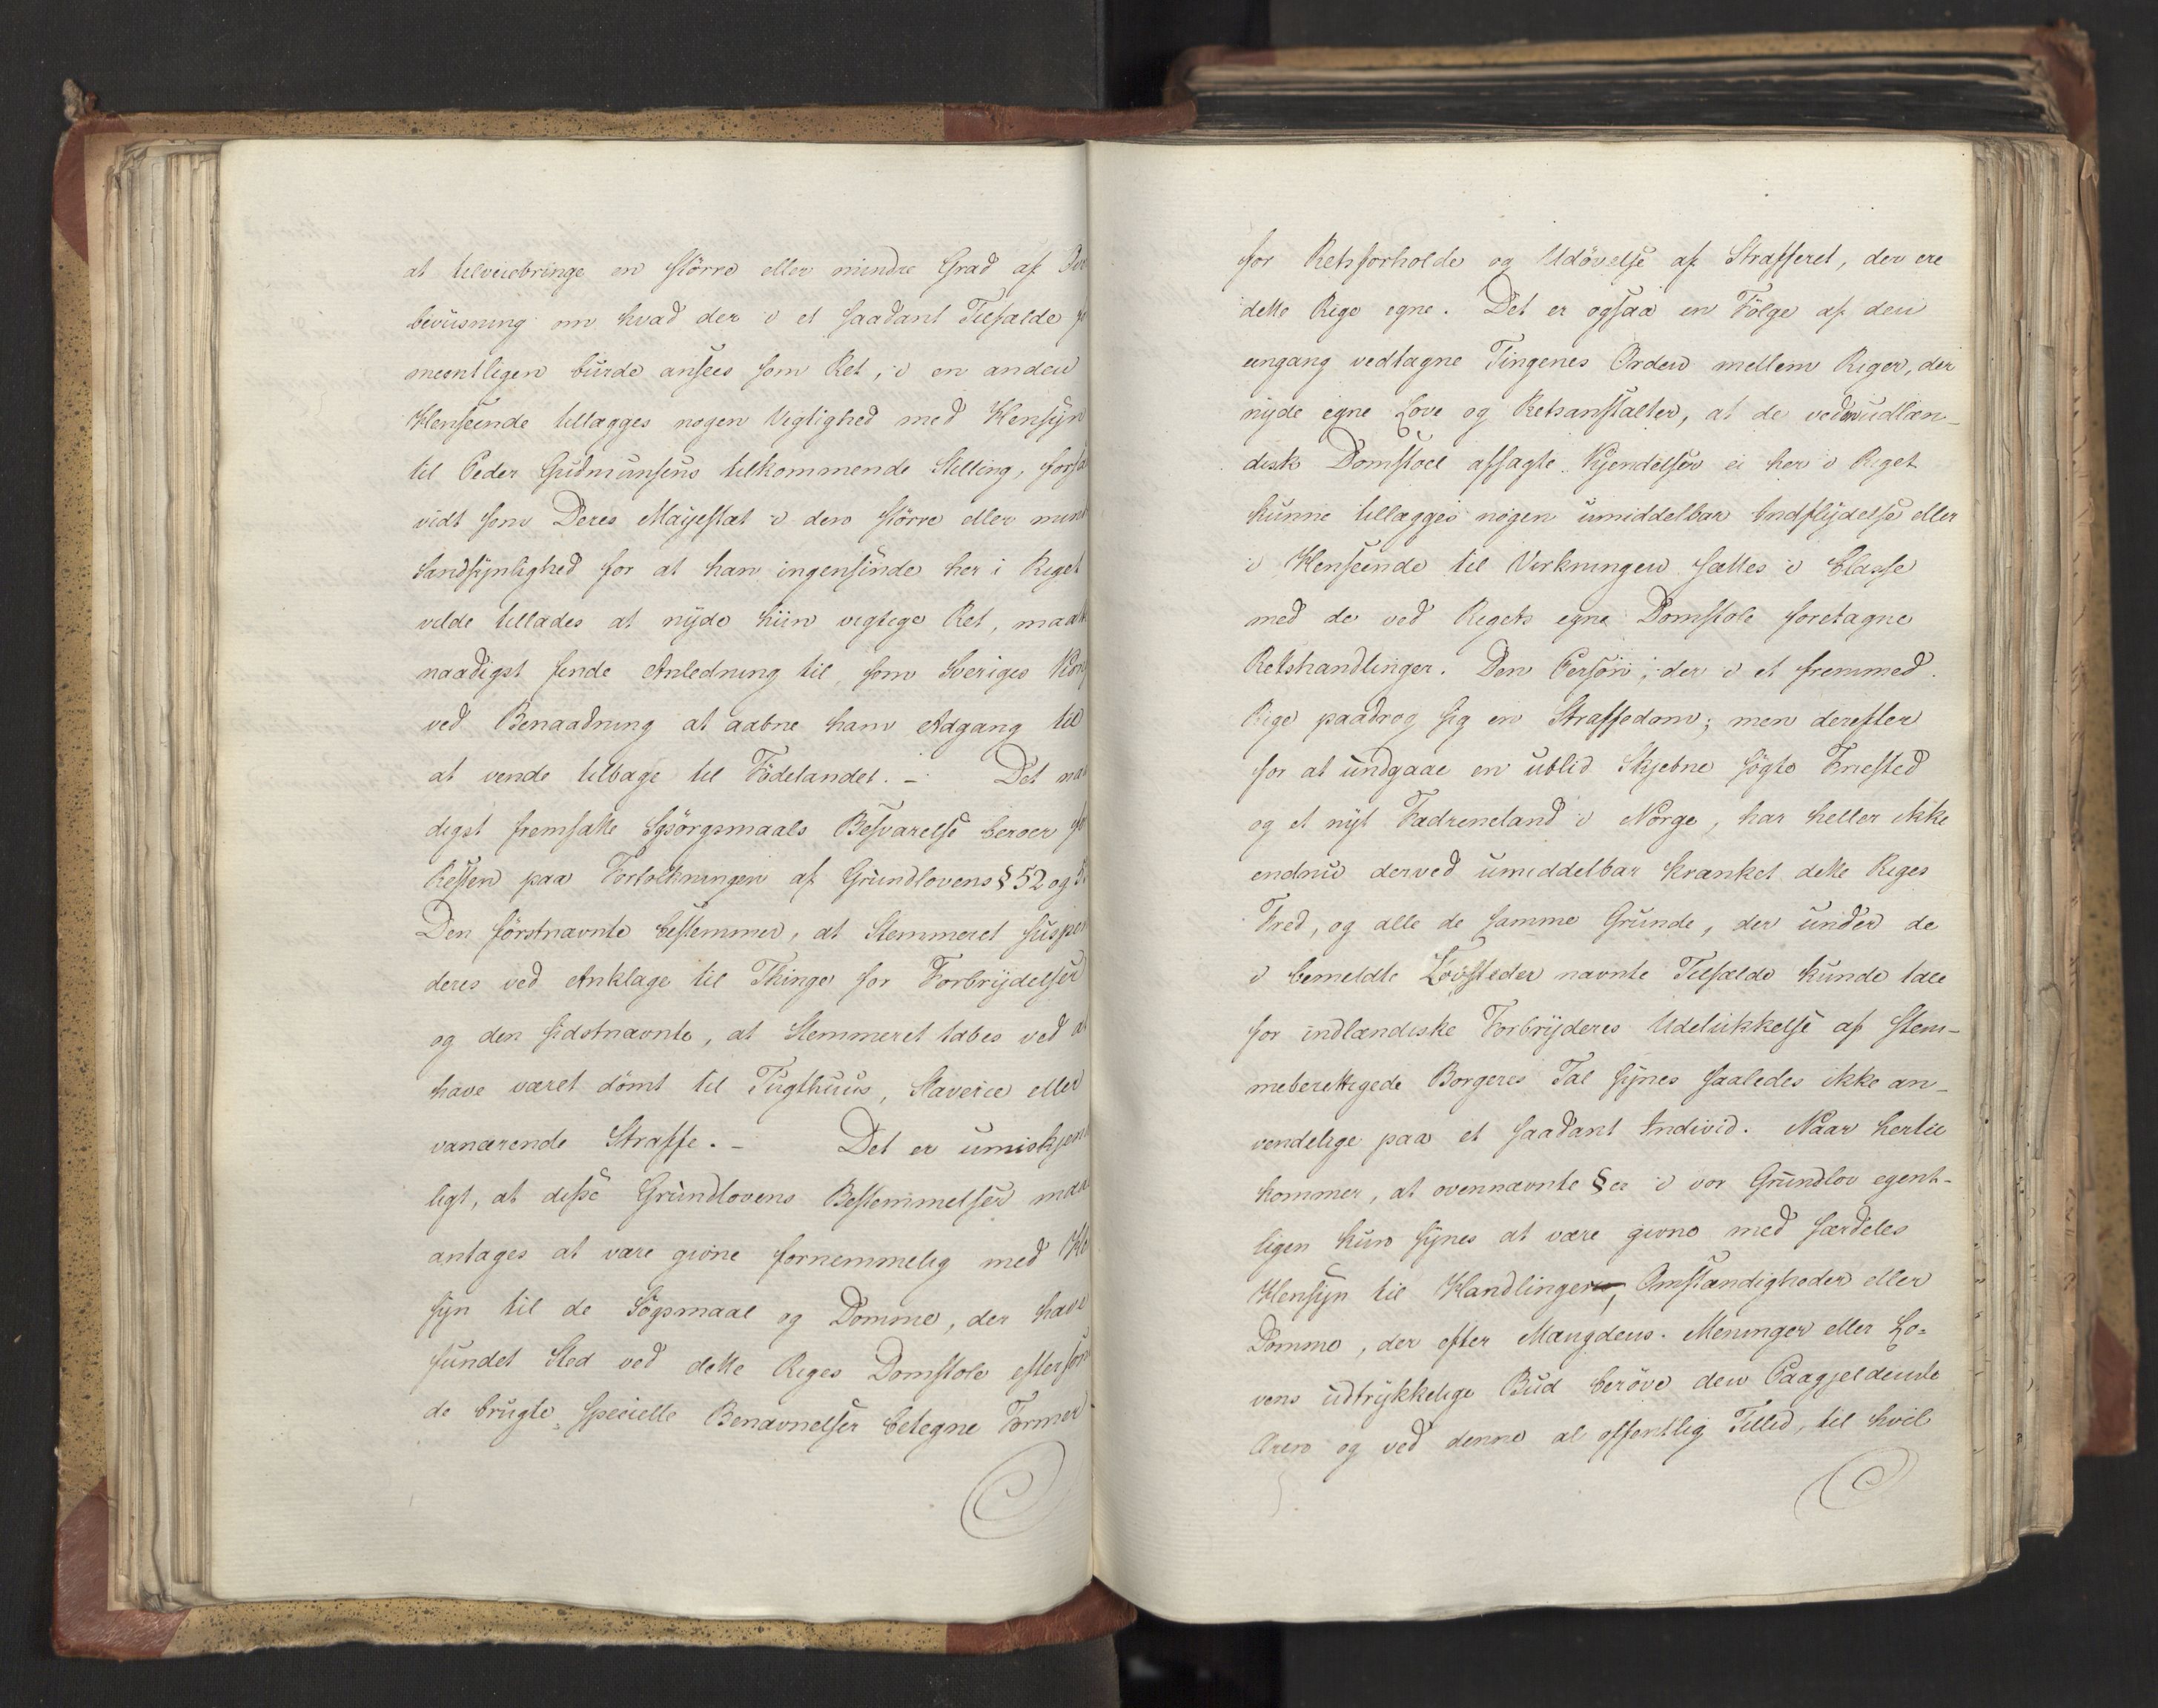 at tilveiebringe en större eller mindre Grad af
beviisning om hvad der i et saadant Tilfælde
meentligen burde ansees som Ret, i en anden
Henseende tillægges nogen Vigtighed med Hensyn
til Peder Gudmunsens tilkommende Stilling, forsaa
vidt som Deres Majestæt i den större eller mind
Sandsynlighed for at han ingensinde her i Riget
vilde tillades at nyde hiin vigtige Ret, maat
naadigst finde Anledning til, som Sveriges Kong
ved Benaadning at aabne ham Adgang til
at vende tilbage til Födelandet. – Det naa
digst fremsatte Spörgsmaals Besvarelse beroer
Resten paa Fortolkningen af Grundlovens § 52 og 5
Den förstnævnte bestemmer, at Stemmeret suspen
deres ved Anklage til Thinge for Forbrydelser
og den sidstnævnte, at Stemmeret tabes ved at
have været dömt til Tugthuus, Slaverie eller
vanærende Straffe. – Det er umiskjen
ligt, at disse Grundlovens Bestemmelser maa
antages at være givne fornemmelig med He
syn til de Sögsmaal og Domme, der have
fundet Sted ved dette Riges Domstole eftersom
de brugte specielle Benævnelser betegne Former
for Retsforholde og Udövelse af Strafferet, der ere
dette Rige egne. Det er ogsaa en Fölge af den
eengang vedtagne Tingenes Orden mellem Riger, der
nyde egne Love og Retsanstalter, at de ved en udlæn-
disk Domstoel afsagte Kjendelser ei her i Riget
kunne tillægges nogen umiddelbar Indflydelse eller
i Henseende til Virkningen sættes i Classe
med de ved Rigets egne Domstole foretagne
Retshandlinger. Den Person, der i et fremmed
Rige paadrog sig en Straffedom; men derefter
for at undgaae en ublid Skjebne sögte Friested
og et nyt Fædreneland i Norge, har heller ikke
endnu derved umiddelbar krænket dette Riges
Fred, og alle de samme Grunde, der under de
i bemeldte Lovsteder nævnte Tilfælde kunde tale
for indlændiske Forbryderes Udelukkelse af stem-
meberettigede Borgeres Tal synes saaledes ikke an-
vendelige paa et saadant Individ. Naar hertil
kommer, at ovennævnte §er i vor Grundlov egent-
ligen kun synes at være givne med særdeles
Hensyn til Handlinger, Omstændigheder eller
Domme, der efter Mængdens Meninger eller Lo-
vens udtrykkelige Bud beröve den Paagjeldende
Æren og ved denne al offentlig Tillid, til hvil